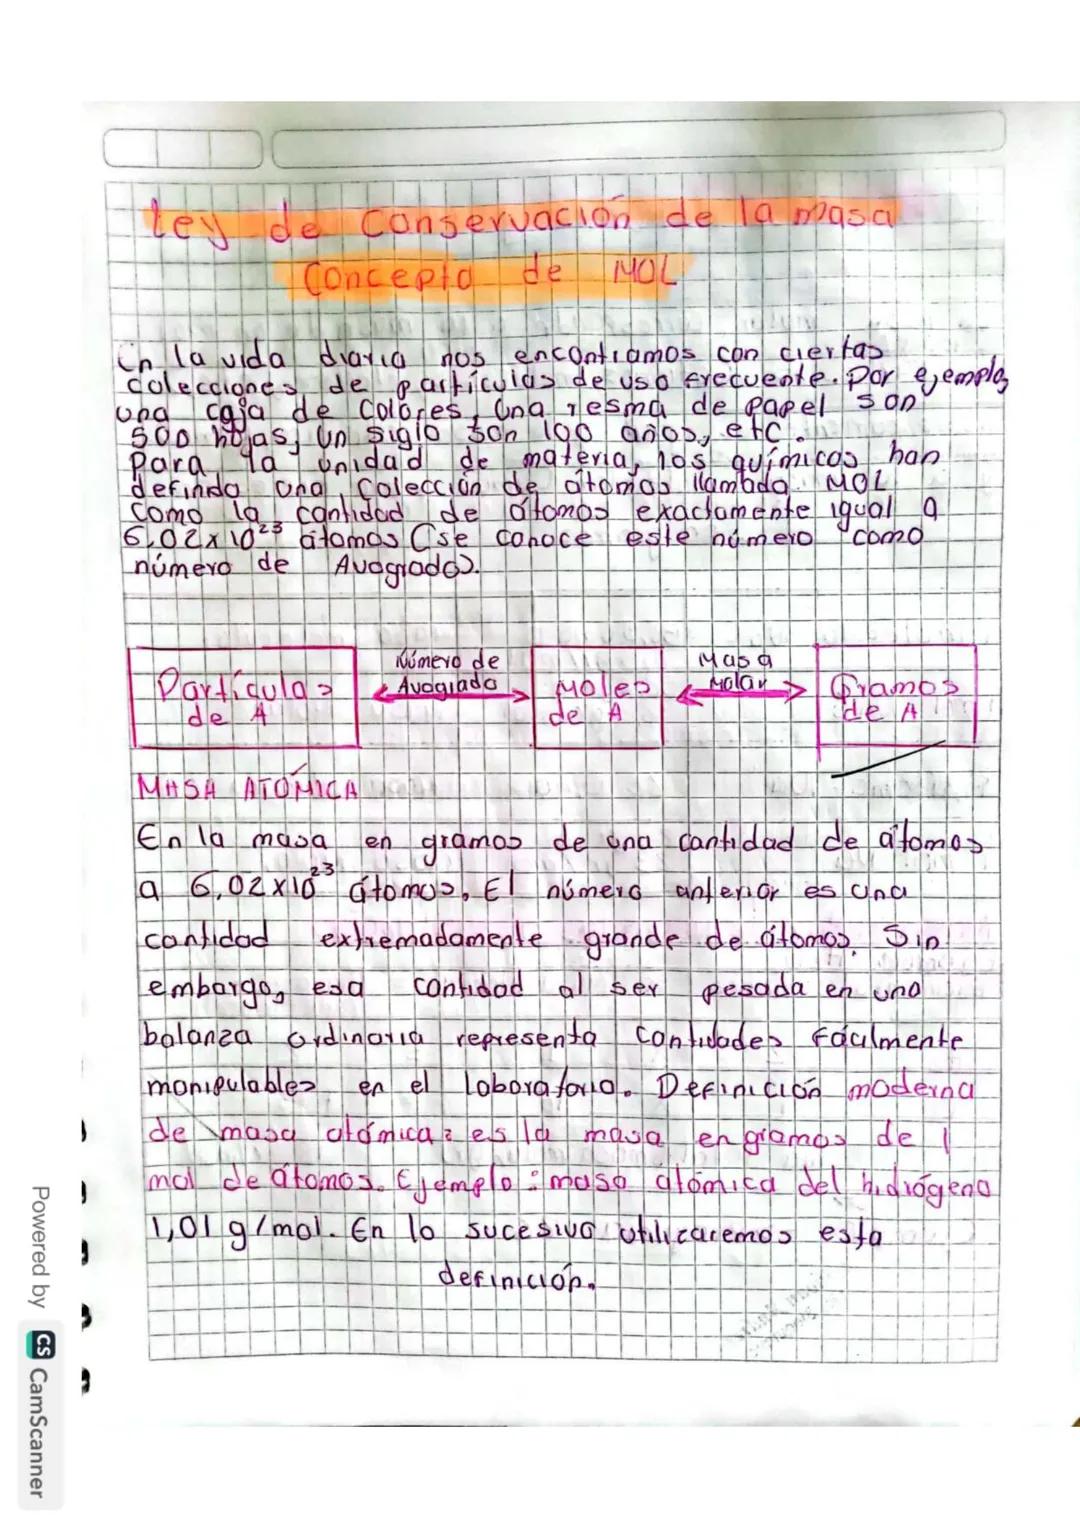 Ley de Conservación de la masa
Concepto de MOL
En la vida diaria nos encontramos con ciertas
colecciones de partículas de uso frecuente. Por ejemplo,
una caja de colores, una resma de papel son
500 hojas, un siglo son 100 años, etc.
Para la unidad de materia, los químicos han
definido una colección de átomos llamada MOL
como la cantidad de átomos exactamente igual a
6,02x10²³ átomos (se conoce este número como
número de Avogrado).
Número de
Masa
Partículas
Avogrado
Moles
Molar
Gramos
de A
de A
de A
MASA ATÓMICA
En la masa en gramos de una cantidad de átomos
a 6,02x10²³ átomos. El número anterior es una
cantidad extremadamente grande de átomos. Sin
embargo, esa cantidad al ser pesada en una
balanza ordinaria representa cantidades fácilmente
manipulables en el laboratorio. Definición moderna
de masa atómica: es la masa en gramos de 1
mol de átomos. Ejemplo: masa atómica del hidrógeno
1,01 g/mol. En lo sucesivo utilizaremos esta
definición.
Powered by CS CamScanner